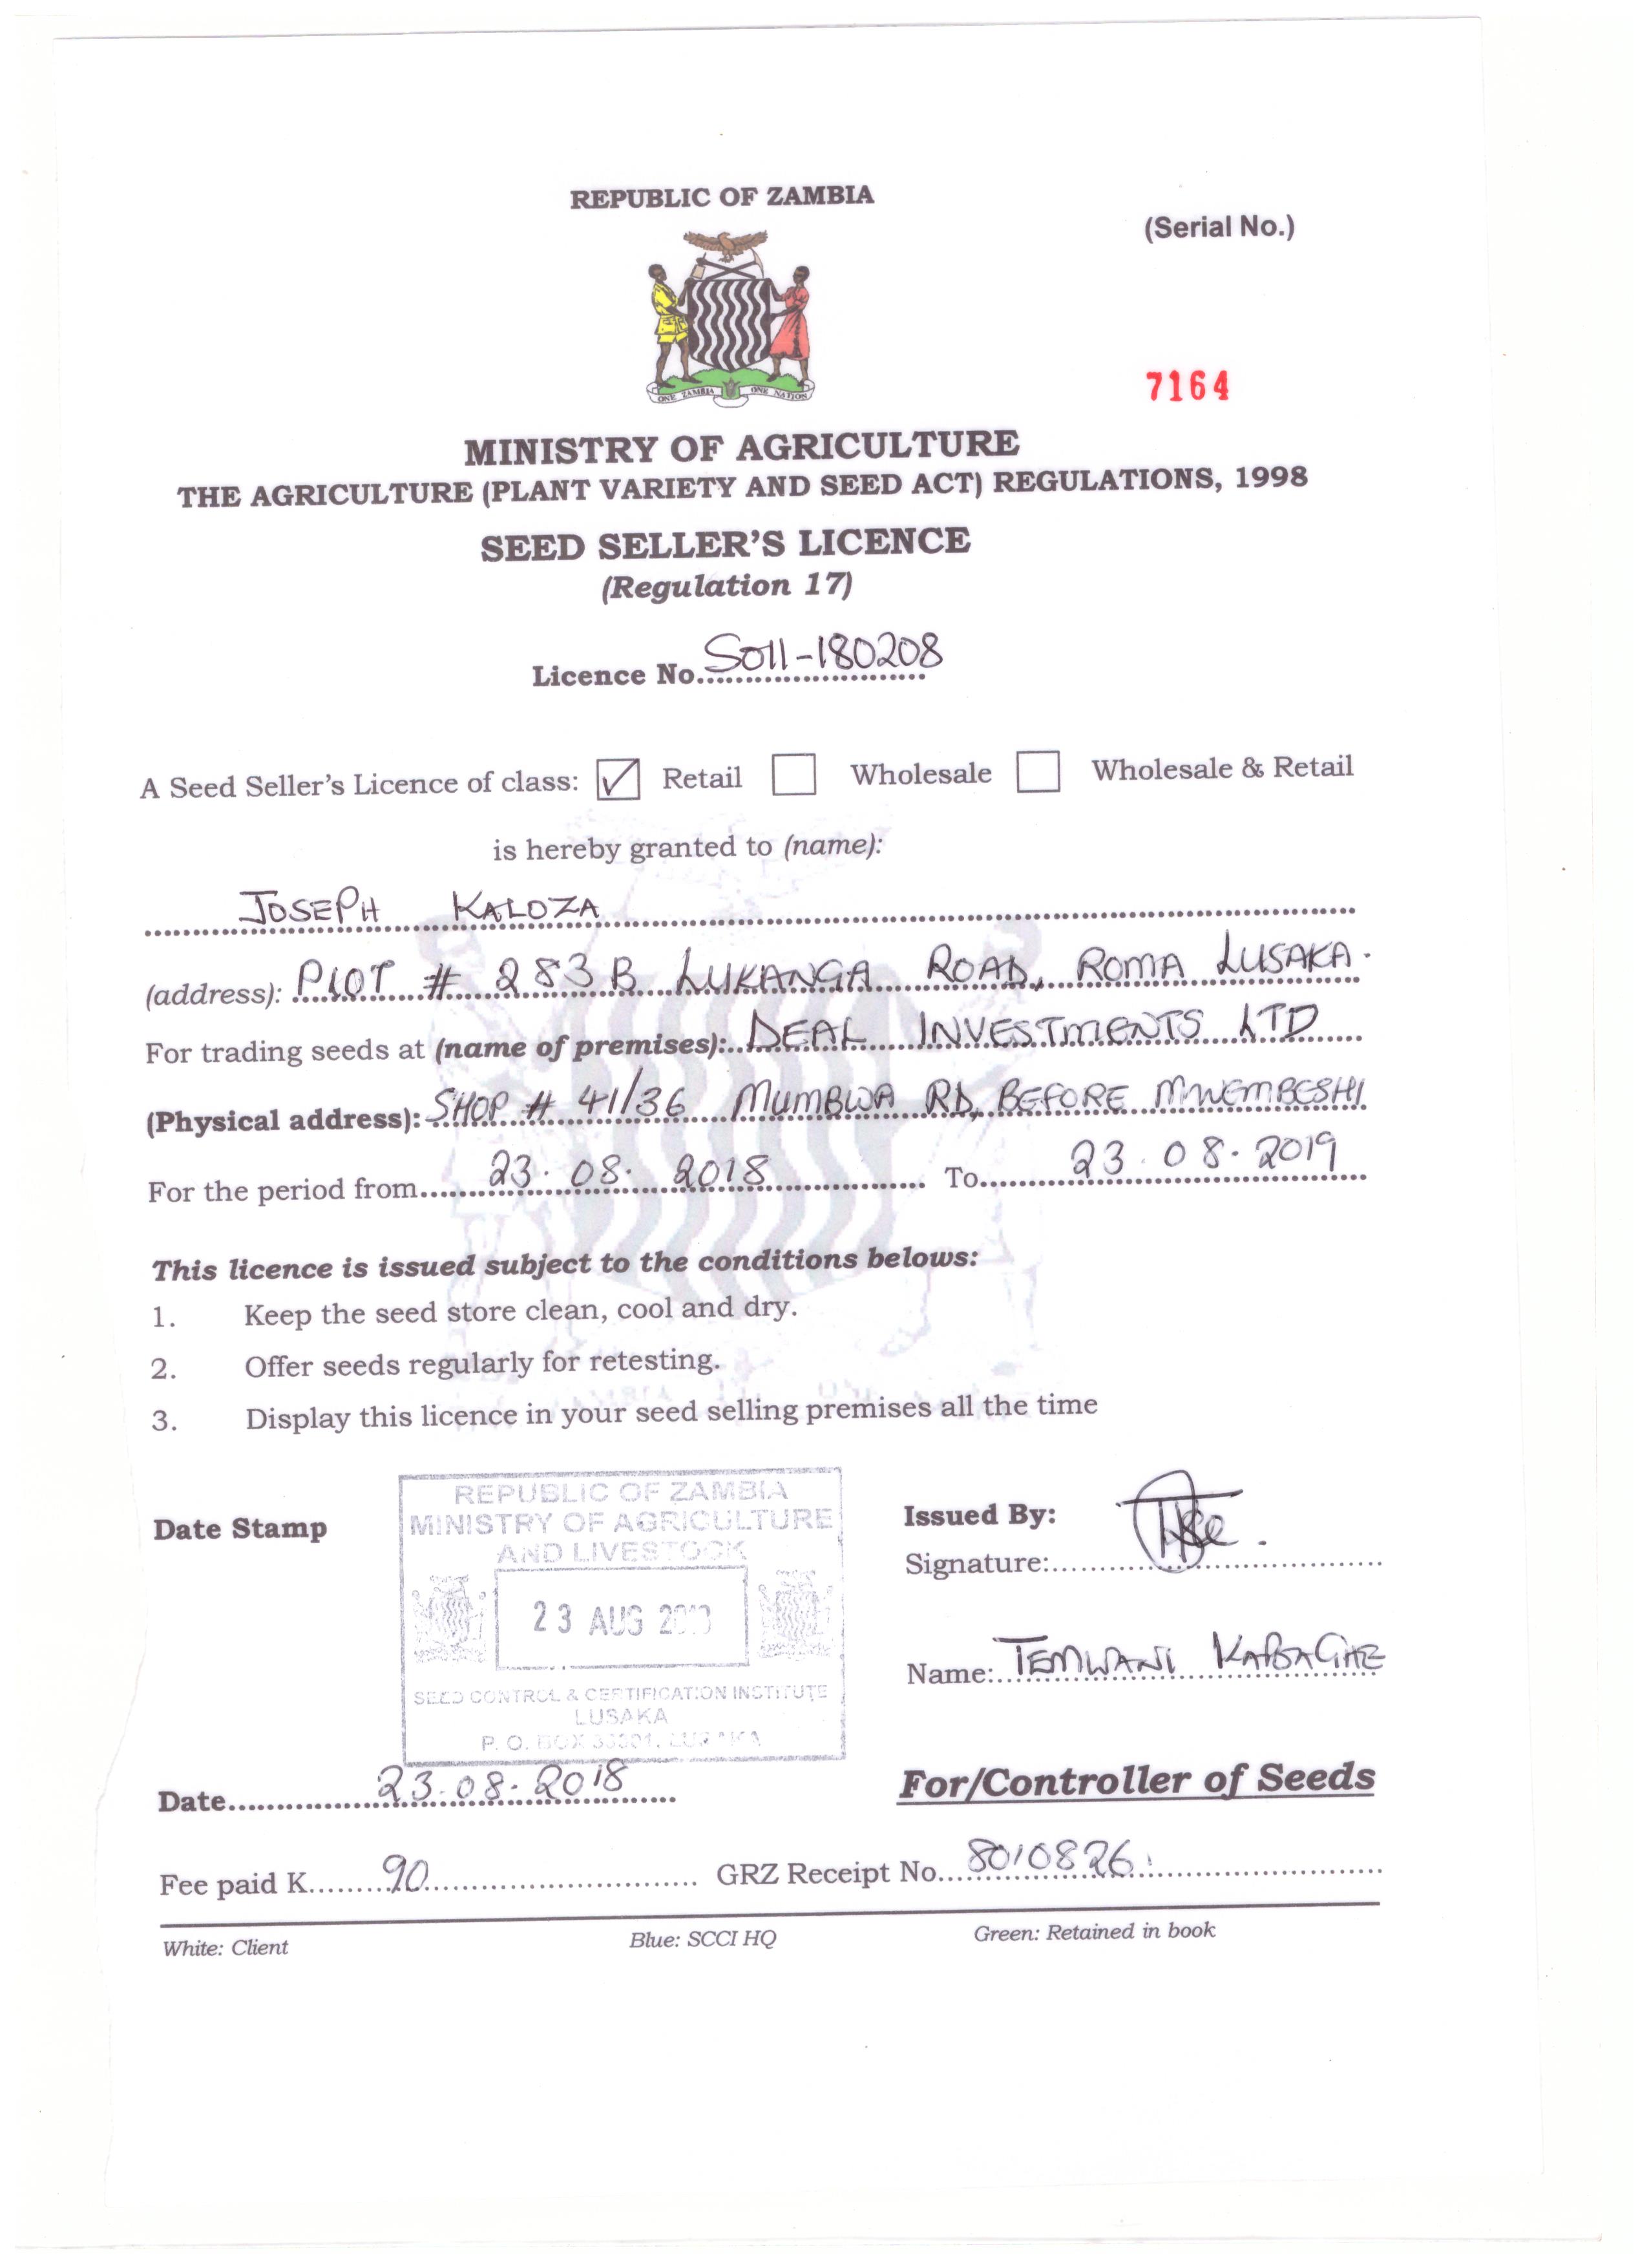 REPUBLIC OF ZAMBIA
(Serial No.)
ONE ZAMBIA ONE NATION
7164
MINISTRY OF AGRICULTURE
THE AGRICULTURE (PLANT VARIETY AND SEED ACT) REGULATIONS, 1998
SEED SELLER'S LICENCE
(Regulation 17)
Licence No. SO11-180208
A Seed Seller's Licence of class: ✓ Retail Wholesale Wholesale & Retail
is hereby granted to (name):
JOSEPH KALOZA
(address): PLOT # 283B LUKANGA ROAD, ROMA LUSAKA.
For trading seeds at (name of premises): DEAL INVESTMENTS LTD
(Physical address): SHOP # 41/36 MUMBWA RD, BEFORE MWEMBESHI
For the period from 23.08.2018 To 23.08.2019
This licence is issued subject to the conditions belows:
1. Keep the seed store clean, cool and dry.
2. Offer seeds regularly for retesting.
3. Display this licence in your seed selling premises all the time
Date Stamp
REPUBLIC OF ZAMBIA
MINISTRY OF AGRICULTURE
AND LIVESTOCK
23 AUG
SEED CONTROL & CERTIFICATION INSTITUTE
LUSAKA
P. O. BOX LUSAKA
Issued By:
Signature:
Name: TEMWANI KABAGHE
Date 23.08.2018
For/Controller of Seeds
Fee paid K 90 GRZ Receipt No. 8010826
White: Client Blue: SCCI HQ Green: Retained in book